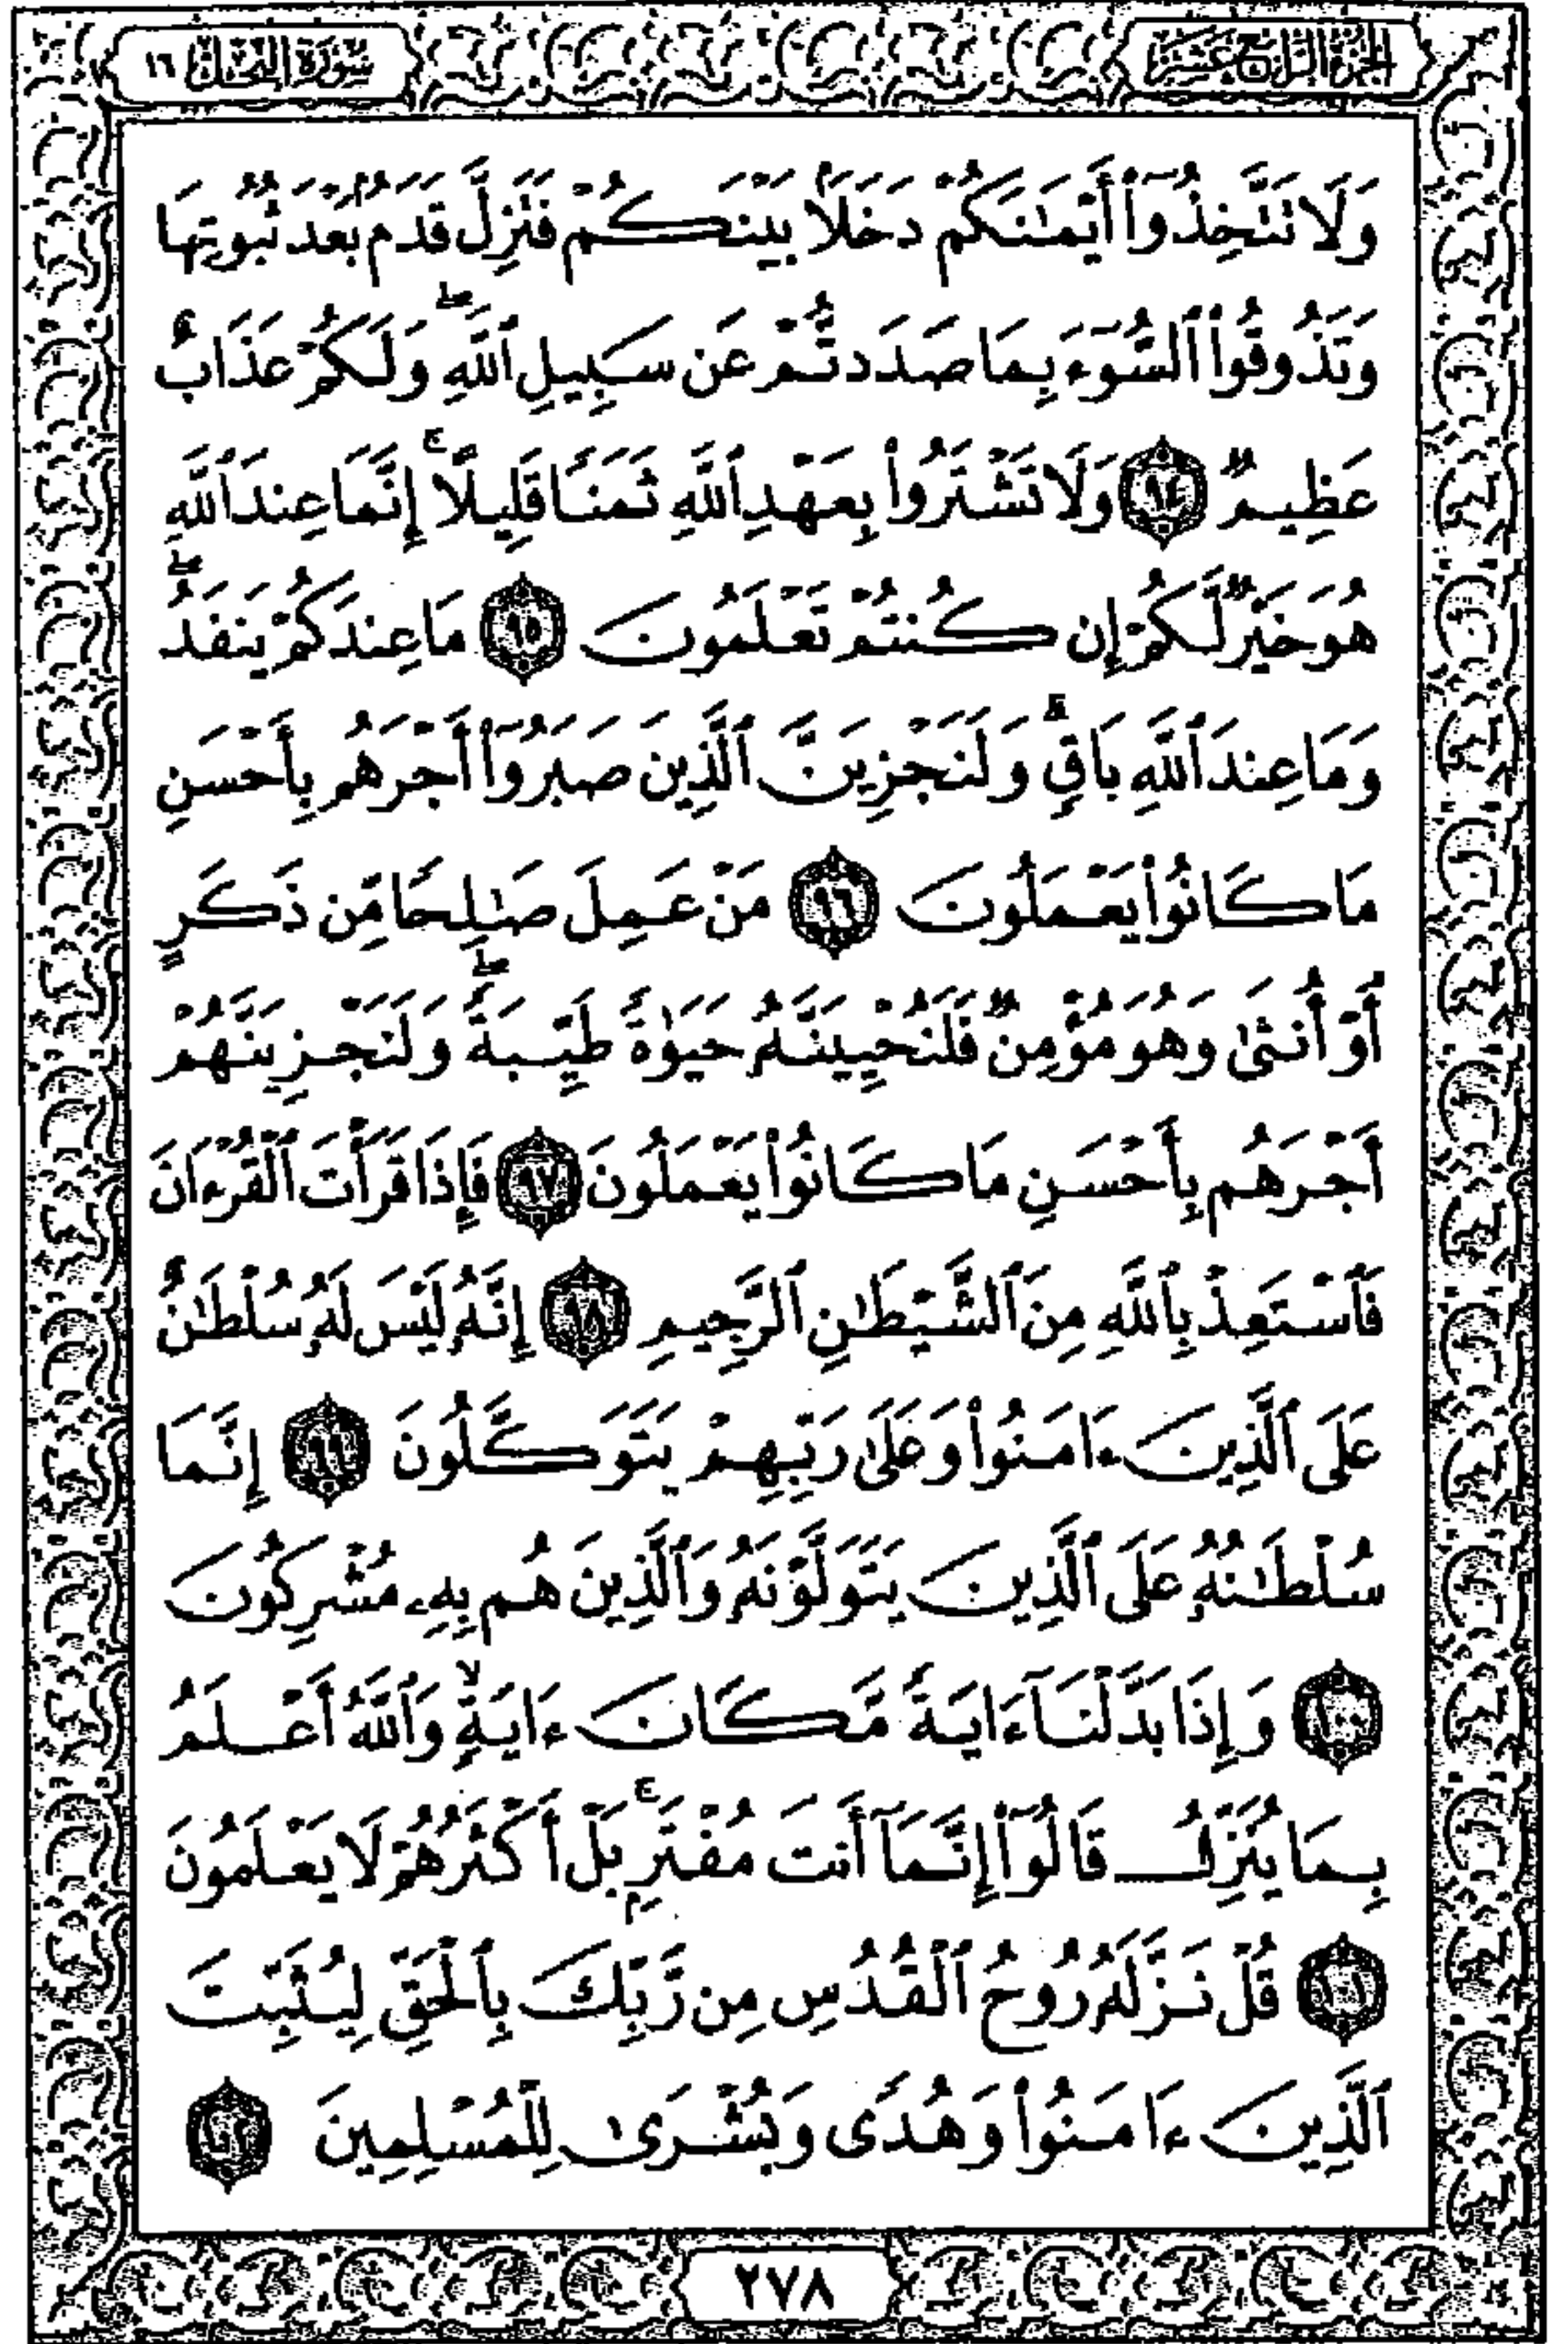 الجزء الرابع عشر
سورة النحل ١٦
وَلَا تَتَّخِذُوٓا۟ أَيْمَـٰنَكُمْ دَخَلًۢا بَيْنَكُمْ فَتَزِلَّ قَدَمٌۢ بَعْدَ ثُبُوتِهَا
وَتَذُوقُوا۟ ٱلسُّوٓءَ بِمَا صَدَدتُّمْ عَن سَبِيلِ ٱللَّهِ ۖ وَلَكُمْ عَذَابٌ
عَظِيمٌ ٩٤ وَلَا تَشْتَرُوا۟ بِعَهْدِ ٱللَّهِ ثَمَنًا قَلِيلًا ۚ إِنَّمَا عِندَ ٱللَّهِ
هُوَ خَيْرٌ لَّكُمْ إِن كُنتُمْ تَعْلَمُونَ ٩٥ مَا عِندَكُمْ يَنفَدُ ۖ
وَمَا عِندَ ٱللَّهِ بَاقٍ ۗ وَلَنَجْزِيَنَّ ٱلَّذِينَ صَبَرُوٓا۟ أَجْرَهُم بِأَحْسَنِ
مَا كَانُوا۟ يَعْمَلُونَ ٩٦ مَنْ عَمِلَ صَـٰلِحًا مِّن ذَكَرٍ
أَوْ أُنثَىٰ وَهُوَ مُؤْمِنٌ فَلَنُحْيِيَنَّهُۥ حَيَوٰةً طَيِّبَةً ۖ وَلَنَجْزِيَنَّهُمْ
أَجْرَهُم بِأَحْسَنِ مَا كَانُوا۟ يَعْمَلُونَ ٩٧ فَإِذَا قَرَأْتَ ٱلْقُرْءَانَ
فَٱسْتَعِذْ بِٱللَّهِ مِنَ ٱلشَّيْطَـٰنِ ٱلرَّجِيمِ ٩٨ إِنَّهُۥ لَيْسَ لَهُۥ سُلْطَـٰنٌ
عَلَى ٱلَّذِينَ ءَامَنُوا۟ وَعَلَىٰ رَبِّهِمْ يَتَوَكَّلُونَ ٩٩ إِنَّمَا
سُلْطَـٰنُهُۥ عَلَى ٱلَّذِينَ يَتَوَلَّوْنَهُۥ وَٱلَّذِينَ هُم بِهِۦ مُشْرِكُونَ
١٠٠ وَإِذَا بَدَّلْنَآ ءَايَةً مَّكَانَ ءَايَةٍ ۙ وَٱللَّهُ أَعْلَمُ
بِمَا يُنَزِّلُ قَالُوٓا۟ إِنَّمَآ أَنتَ مُفْتَرٍۭ ۚ بَلْ أَكْثَرُهُمْ لَا يَعْلَمُونَ
١٠١ قُلْ نَزَّلَهُۥ رُوحُ ٱلْقُدُسِ مِن رَّبِّكَ بِٱلْحَقِّ لِيُثَبِّتَ
ٱلَّذِينَ ءَامَنُوا۟ وَهُدًى وَبُشْرَىٰ لِلْمُسْلِمِينَ ١٠٢
٢٧٨